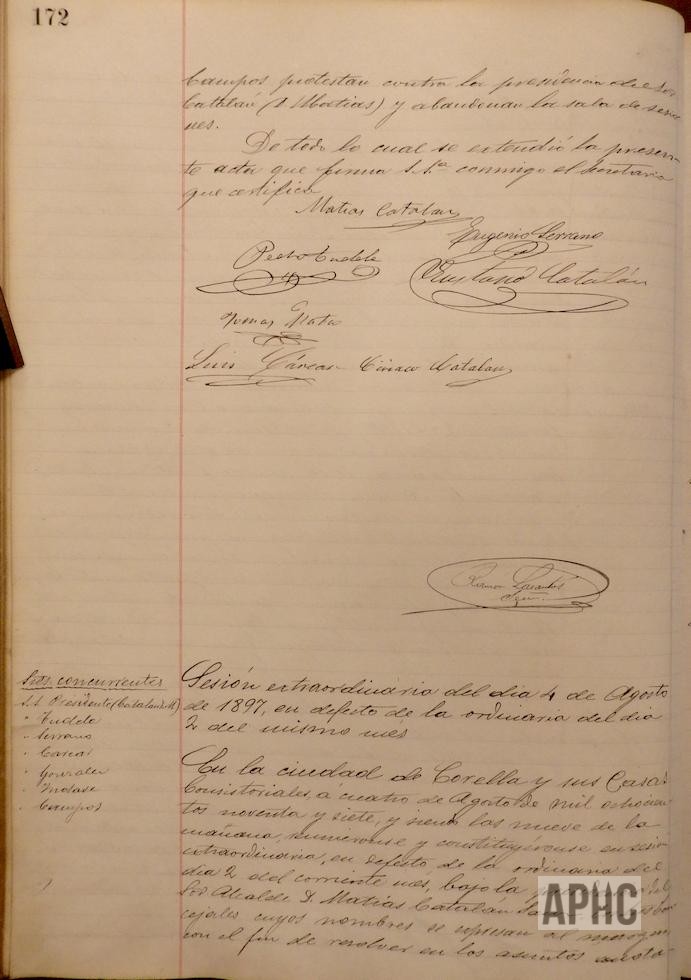 172
Campos protestan contra la presidencia del Sor
Catalán (D Matias) y abandonan la sala de sesio
nes.
De todo lo cual se extendió la presen-
te acta que firma S.Sª. conmigo el Secretario
que certifica
Matias Catalan
Eugenio Serrano
Pedro Tudela
Catalán
Tomas
Luis Ciriaco Catalan
Ramon
Sres. concurrentes
S.S. Presidente (Catalan M)
" Tudela
" Serrano
" Garcia
" Gonzalez
" Campos
Sesión extraordinária del dia 4 de Agosto
de 1897, en defecto de la ordinaria del dia
2 del mismo mes
En la ciudad de Corella y sus Casas
Consistoriales, á cuatro de Agosto de mil ochocien-
tos noventa y siete, y siendo las nueve de la
mañana, reunieronse y constituyeronse en sesión
extraordinaria, en defecto de la ordinaria del
dia 2 del corriente mes, bajo la
Sor. Alcalde D. Matias Catalán
cejales cuyos nombres se espresan al margen
con el fin de resolver en los asuntos anota-
APHC